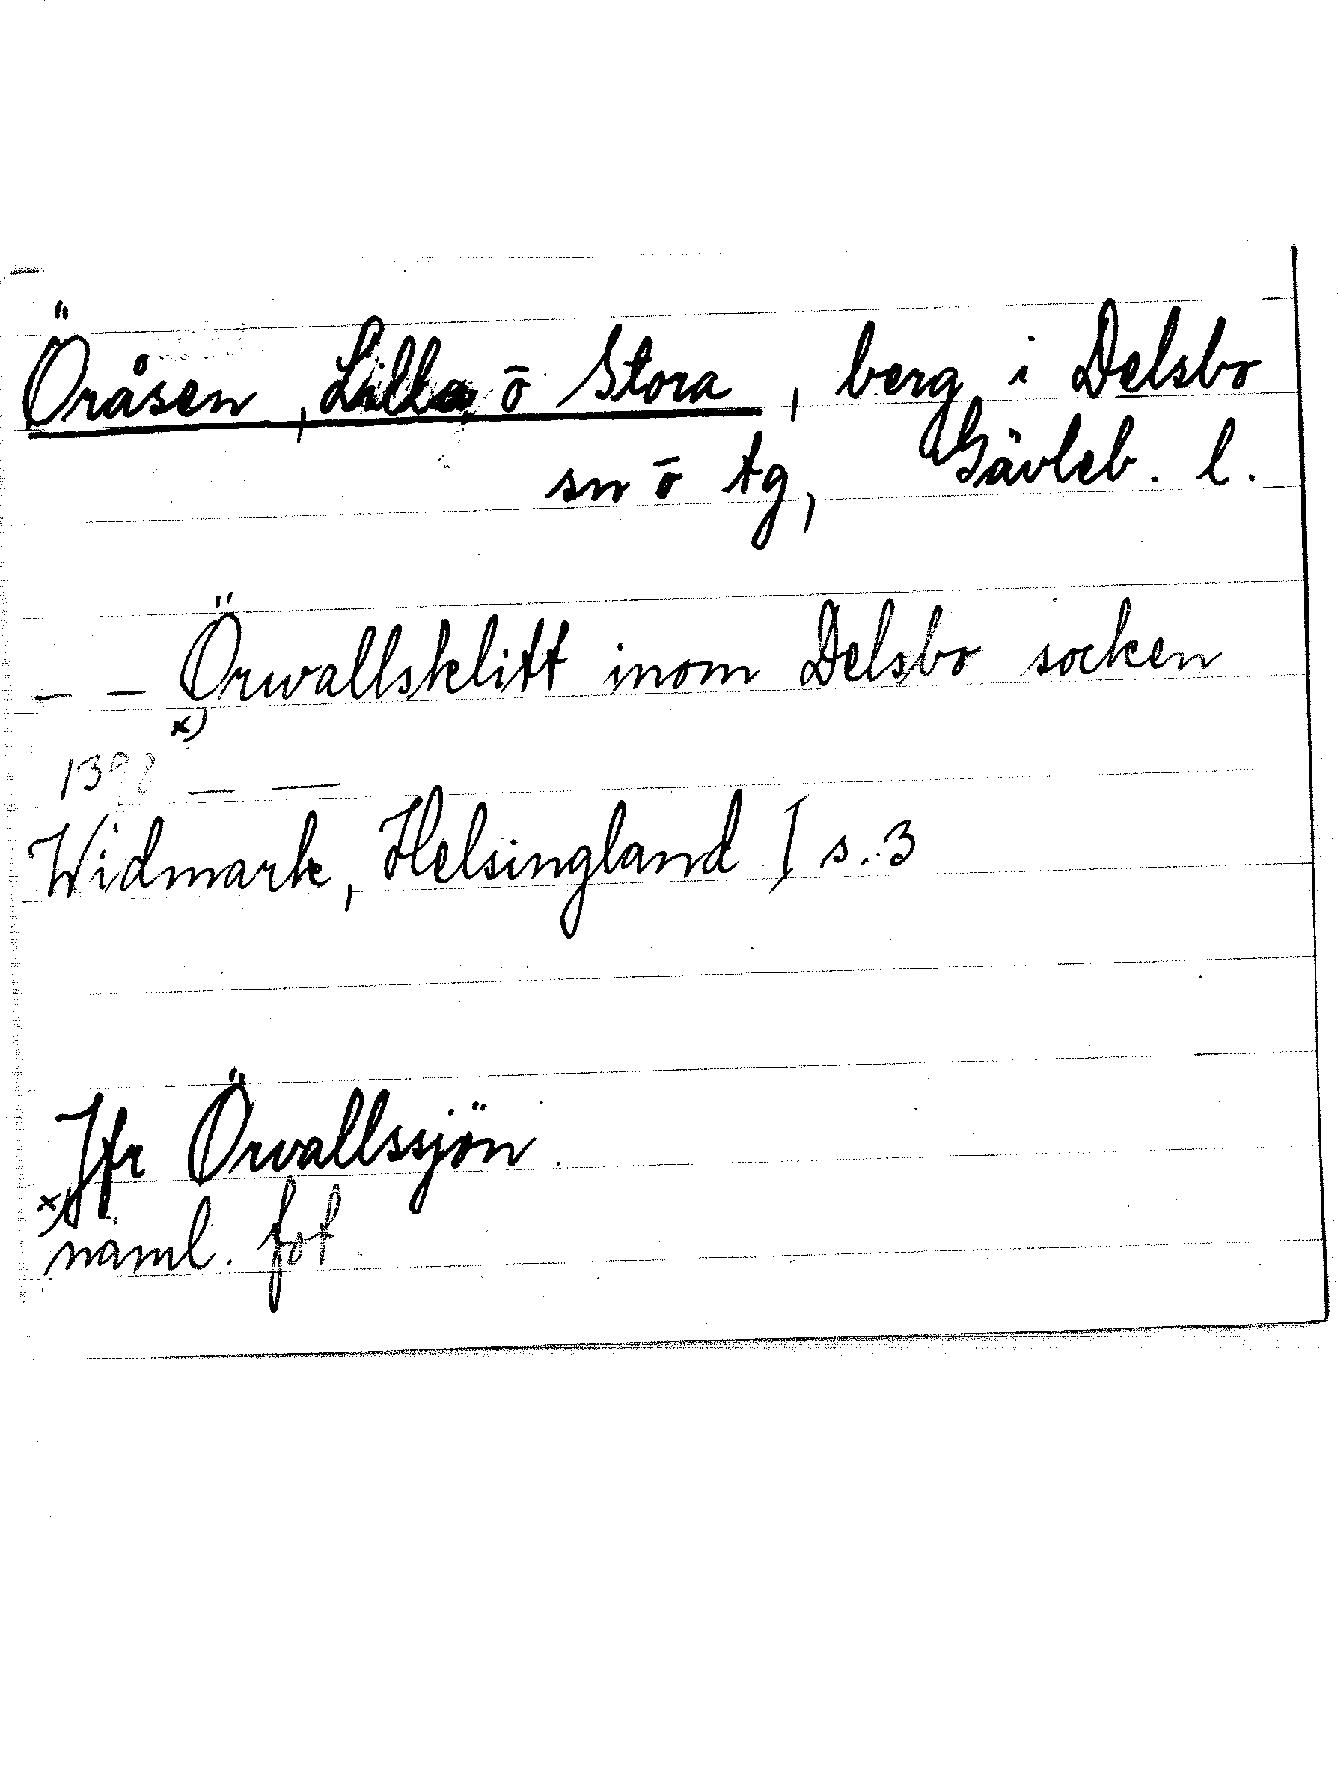 Öråsen, Lilla o̅ Stora, berg i Delsbo
sn o̅ tg, Gävleb. l.
– – Örwallsklitt inom Delsbo socken
x)
1398 – –
Widmark, Helsingland I s. 3
Jfr Örvallssjön
x) näml. fot